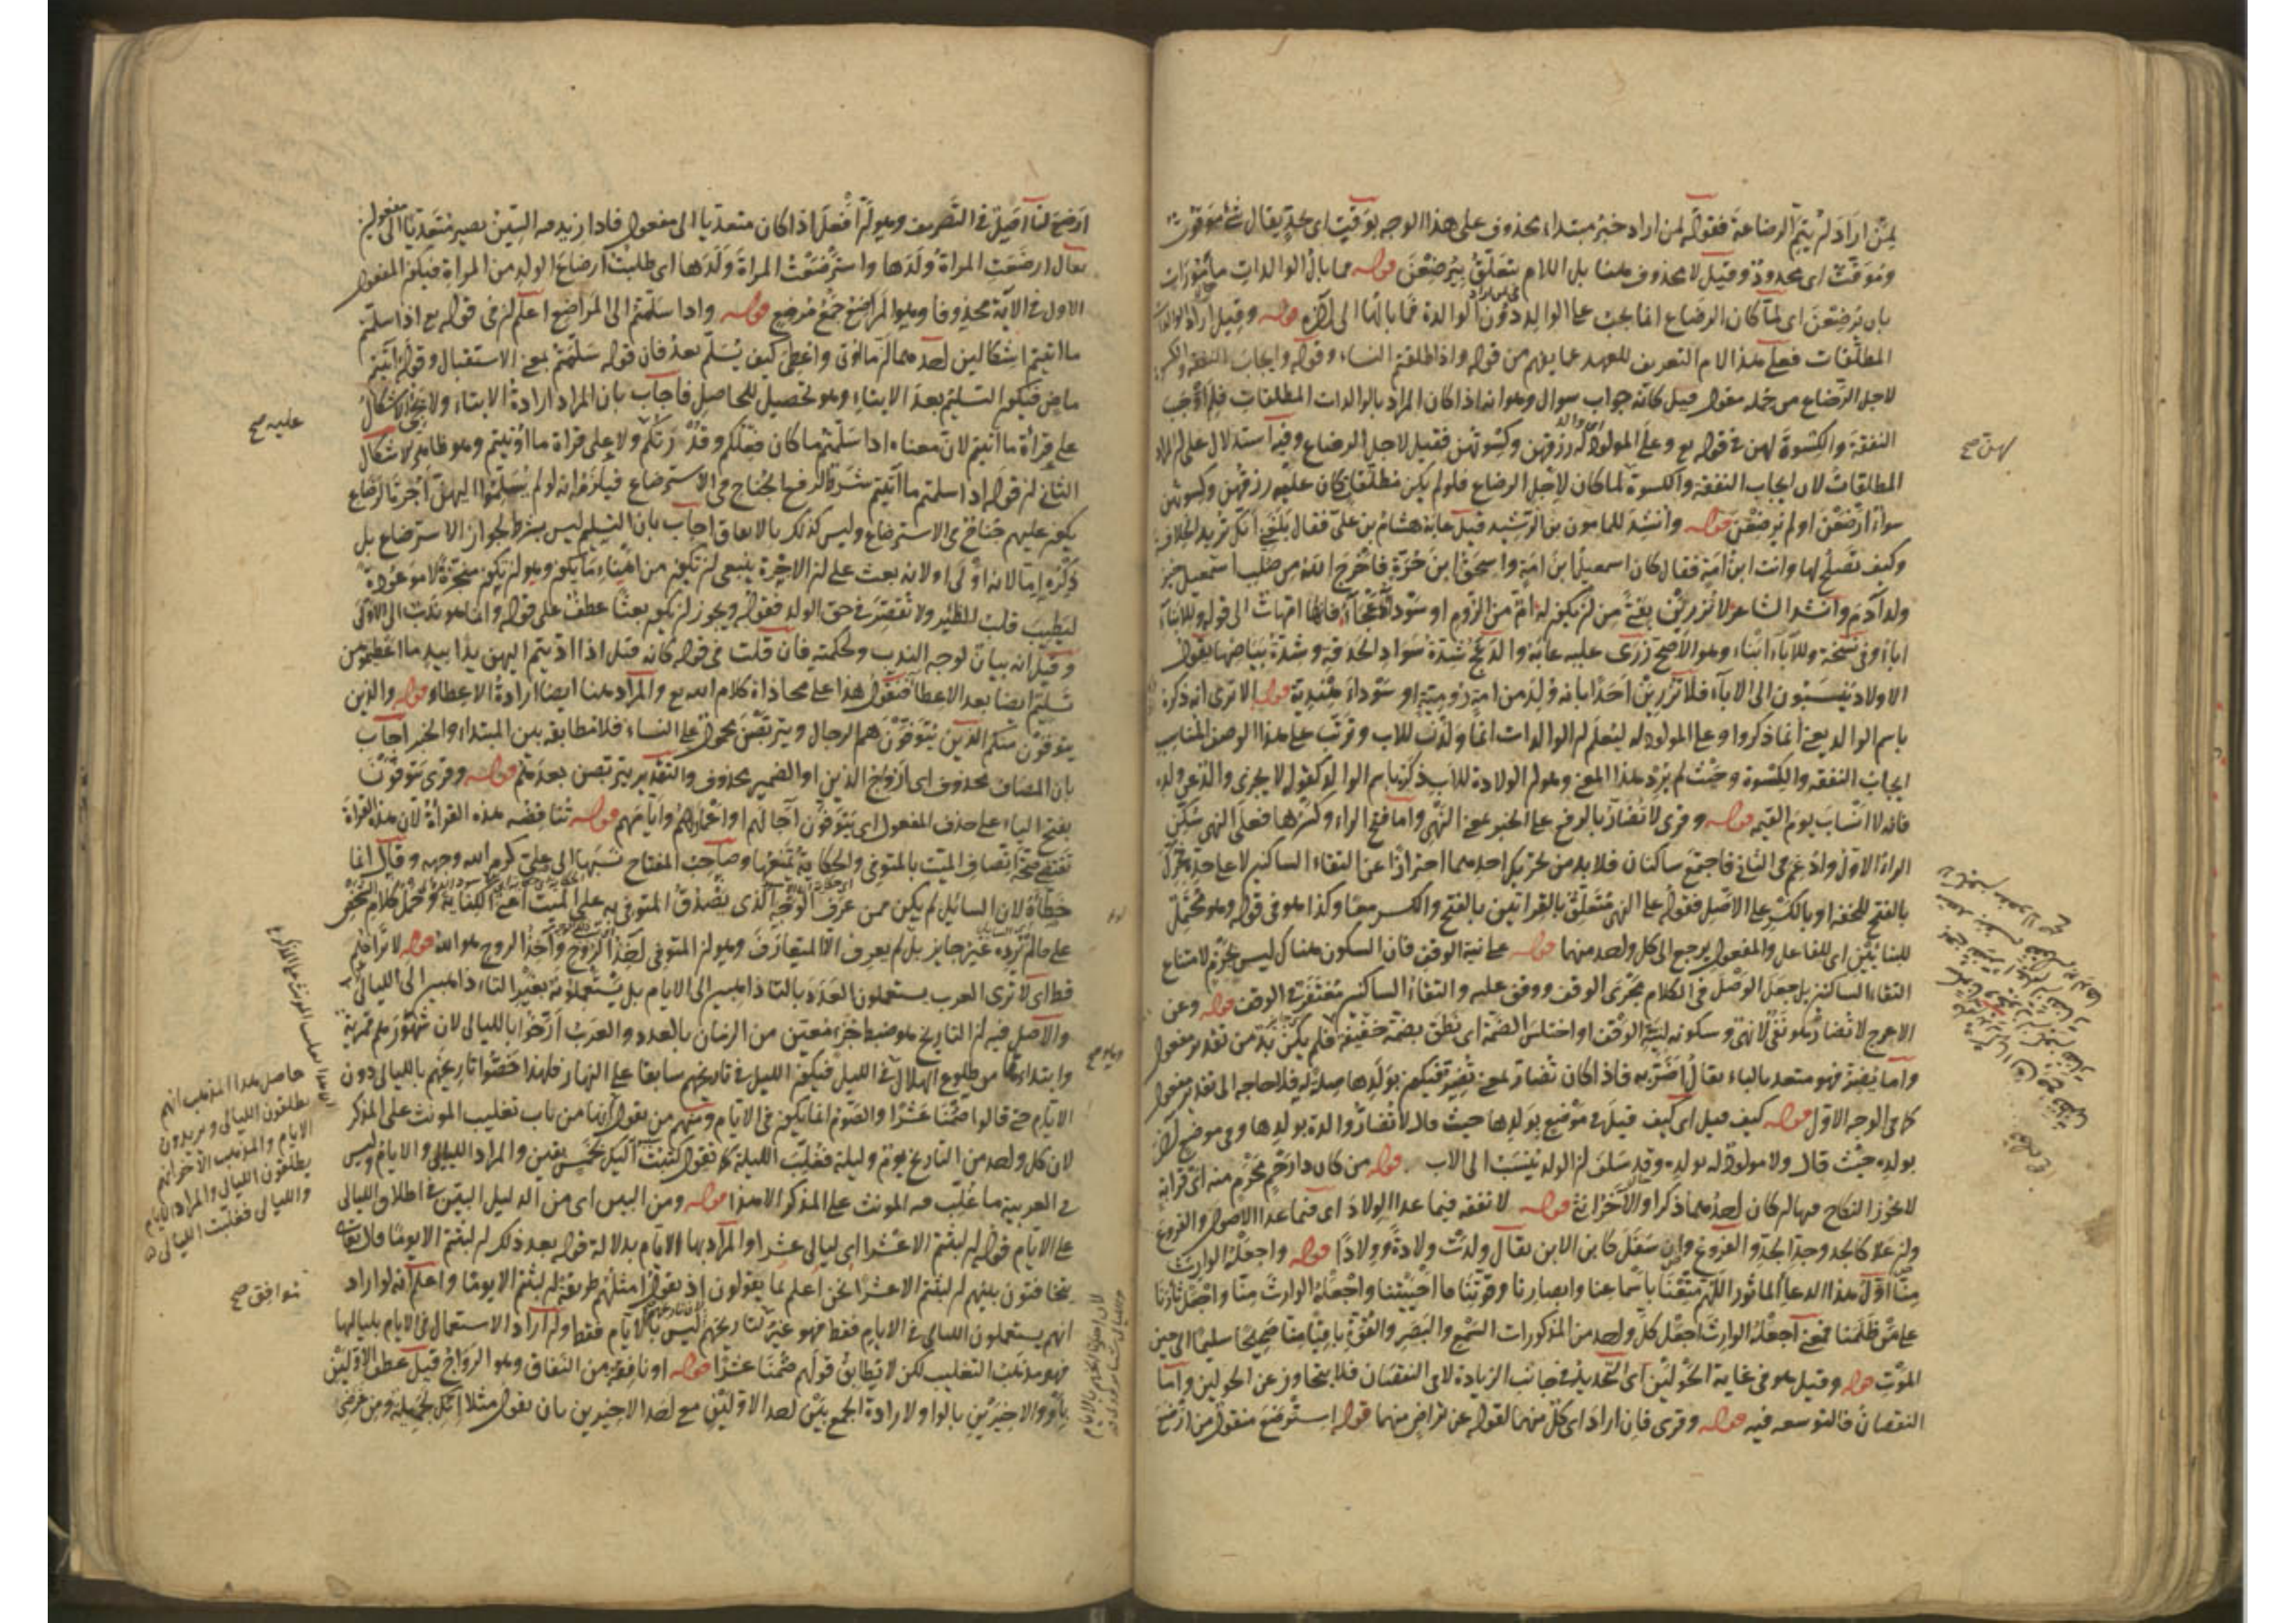 لمن اراد ان يتم الرضاعة فقوله لمن اراد خبر مبتداء محذوف على هذا الوجه توقيت اى حد يقال شئ موقوت
وموقت اى محدود وقيل لا محذوف ههنا بل اللام يتعلق بيرضعن قوله فما بال الوالدات مأمورات
بان يرضعن اى لما كان الرضاع انما يجب على الوالد دون الوالدة فما بالها الى آخره قوله وقيل اراد الوالدات
المطلقات فعلى هذا لام التعريف للعهد عما يفهم من قوله واذا طلقتم النساء وقوله وايجاب النفقة والكسوة
لاجل الرضاع من جملة مقول قيل كانه جواب سوال وهو انه اذا كان المراد بالوالدات المطلقات فلم اوجب
النفقة والكسوة لهن فى قوله تع وعلى المولود له رزقهن وكسوتهن فقيل لاجل الرضاع وفيه استدلال على ان المراد
المطلقات لان ايجاب النفقة والكسوة لما كان لاجل الرضاع فلو لم يكن مطلقات كان عليه رزقهن وكسوتهن
سواء ارضعن او لم يرضعن قوله وانشد للمامون بن الرشيد قيل عابه هشام بن على فقال بلغنى انك تريد الخلافة
وكيف تصلح لها وانت ابن امة فقال كان اسمعيل ابن امة واسحق ابن حرة فاخرج الله من صلب اسمعيل خير
ولد آدم وانشد الشاعر لا تزرين بفتى من ان يكون له ام من الروم او سوداء دعجاء فانما امهات الى قوله وللابناء
اباء وفى نسخة وللآباء ابناء وهو الاصح زرى عليه عابه والدعج شدة سواد الحدقة وشدة بياضها يقول
الاولاد ينسبون الى الآباء فلا تزرين احدا بانه ولد من امة رومية او سوداء هندية قوله الا ترى انه ذكره
باسم الوالد يعنى انما ذكروا وعلى المولود له ليعلم ان الوالدات انما ولدت للاب وترتب على هذا الوصف المناسب
ايجاب النفقة والكسوة وحيث لم يرد هذا المعنى وهو ان الولادة للاب ذكره باسم الوالد كقوله لا يجزى والد عن ولده
فانه لا انساب يوم القيمة قوله وقرى لا تضار بالرفع على الخبر بمعنى النهى واما فتح الراء وكسرها فعلى النهى سكن
الراء الاول وادغم فى الثانى فاجتمع ساكنان فلا بد من تحريك احدهما احترازا عن التقاء الساكنين لا على حده فحرك
بالفتح للخفة او بالكسر على الاصل فقوله على النهى متعلق بالقراءتين بالفتح والكسر معا وكذا هو فى قوله وهو محتمل
للبنائين اى للفاعل والمفعول يرجع الى كل واحد منهما قوله على نية الوقف فان السكون هناك ليس بجزم لامتناع
التقاء الساكنين بل جعل الوصل فى الكلام مجرى الوقف ووقف عليه والتقاء الساكنين مغتفر فى الوقف قوله وعن
الاعرج لا تضار هو نفى لا نهى وسكونه لنية الوقف او اختلس الضمة اى نطق بضمة خفيفة فلم يكن بد من تقدير مفعول
واما تضر فهو متعد بالباء يقال اضر به فاذا كان تضار بمعنى تضر فيكون بولدها صلة له فلا حاجة الى تقدير مفعول
كما فى الوجه الاول قوله كيف قيل اى كيف قيل فى موضع بولدها حيث قال لا تضار والدة بولدها وفى موضع آخر
بولده حيث قال ولا مولود له بولده وقد سلف ان الولد ينسب الى الاب قوله من كان ذا رحم محرم منه اى قرابة
لا يجوز النكاح فيها لو كان احدهما ذكرا والآخر انثى قوله لا نفقة فيما عدا الولاد اى فيما عدا الاصول والفروع
وان علا كالجد وجد الجد والفروع وان سفل كابن الابن يقال ولدت ولادة وولادا قوله واجعله الوارث
منا اول هذا الدعاء الماثور اللهم متعنا باسماعنا وابصارنا وقوتنا ما احييتنا واجعله الوارث منا واجعل ثارنا
على من ظلمنا فمعنى اجعله الوارث اجعل كل واحد من المذكورات السمع والبصر والقوة باقيا منا صحيحا سليما الى حين
الموت قوله وقيل هو فى غاية الحولين اى التحديد فى جانب الزيادة لا فى النقصان فلا يتجاوز عن الحولين واما
النقصان فالتوسعة فيه قوله وقرى فان اراد اى كل منهما لقوله عن تراض منهما قوله استرضع منقول من ارضع
لهن صح
ارضع لنا اصيل فى التصريف وهو ان افعل اذا كان متعديا الى مفعول فاذا زيد فيه السين يصير متعديا الى مفعولين
يقال ارضعت المراة ولدها واسترضعت المراة ولدها اى طلبت ارضاع الولد من المراة فيكون المفعول
الاول فى الآية محذوفا وهو المراضع جمع مرضع قوله واذا سلمتم الى المراضع اعلم ان فى قوله تع اذا سلمتم
ما اتيتم اشكالين احدهما ان ما اوتى واعطى كيف يسلم بعد فان قوله سلمتم بمعنى الاستقبال وقوله آتيتم
ماض فيكون التسليم بعد الايتاء وهو تحصيل للحاصل فاجاب بان المراد ارادة الايتاء ولا يتجه الاشكال
على قراءة ما اتيتم لان معناه اذا سلمتم ما كان فعلكم وقد رتكم ولا على قراة ما اوتيتم وهو ظاهر الاشكال
الثانى ان قوله اذا سلمتم ما آتيتم شرط لرفع الجناح فى الاسترضاع فيلزم انه لو لم يسلموا اليهن اجرة الرضاع
يكون عليهم جناح فى الاسترضاع وليس كذلك بالاتفاق اجاب بان التسليم ليس بشرط لجواز الاسترضاع بل
ذكره اما لانه اولى او لانه بعث على ان الاجرة ينبغى ان تكون من اهنا ما يكون وهو ان يكون منجزة لا موعودة
ليطيب قلب الظئر ولا تقصر فى حق الولد فقوله ويجوز ان يكون بعثا عطف على قوله وانما هو ندب الى الاولى
وقيل انه بيان لوجه الندب وحكمته فان قلت فى قوله كانه قيل اذا اديتم اليهن يدا بيد ما اعطيتموهن
تسليم ايضا بعد الاعطاء فنقول هذا على محاذاة كلام الله تع والمراد ههنا ايضا ارادة الاعطاء قوله والذين
يتوفون منكم الذين يتوفون هم الرجال ويتربصن محمول على النساء فلا مطابقة بين المبتداء والخبر اجاب
بان المضاف محذوف اى ازواج الذين او الضمير محذوف والتقدير يتربصن بعدهم قوله وقرى يتوفون
بفتح الياء على حذف المفعول اى يتوفون آجالهم او اعمارهم وايامهم قوله تناقضه هذه القراة لان هذه القراة
تقتضى صحة اتصاف الميت بالمتوفى والحكاية تمنعها وصاحب المفتاح نسبها الى على كرم الله وجهه وقال انما
خطاه لان السائل لم يكن ممن عرف الوجه الذى يصدق المتوفى به على الميت اعنى الكناية وحمل كلام الشخص
على ما لم يرده غير جايز بل لم يعرف الا المتعارف وهو ان المتوفى آخذ الروح وآخذ الروح هو الله قوله لا تراهم
قط اى لا ترى العرب يستعملون العدد بالتا ذاهبين الى الايام بل يستعملونه بغير التاء ذاهبين الى الليالى
والاصل فيه ان التاريخ هو ضبط جزء معين من الزمان بالعدد والعرب ارخوا بالليالى لان شهورهم قمرية
وابتداءها من طلوع الهلال فى الليل فيكون الليل فى تاريخهم سابقا على النهار فلهذا خصوا تاريخهم بالليالى دون
الايام حتى قالوا صمنا عشرا والصوم انما يكون فى الايام ومنهم من يقول انها من باب تغليب المونث على المذكر
لان كل واحد من التاريخ يوم وليلة فغلبت الليلة كما تقول كتبت اليك لخمس بقين والمراد الليالى والايام وليس
فى العربية ما غلب فيه المونث على المذكر الا هذا قوله ومن البين اى من الدليل البين فى اطلاق الليالى
على الايام قوله ان لبثتم الا عشرا اى ليالى عشر او المراد بها الايام بدلالة قوله بعد ذلك ان لبثتم الا يوما قال تعالى
يتخافتون بينهم ان لبثتم الا عشرا نحن اعلم بما يقولون اذ يقول امثلهم طريقة ان لبثتم الا يوما واعلم انه لو اراد
انهم يستعملون الليالى فى الايام فقط فهو غير ثابت لان تاريخهم ليس بالايام فقط وان اراد الاستعمال فى الايام بلياليها
فهو مذهب التغليب لكن لا يطابق قولهم صمنا عشرا قوله او نافقة من النفاق وهو الرواج قيل عطف الاوليين
باو والاخيرين بالواو لارادة الجمع بين احد الاوليين مع احد الاخيرين بان يقول مثلا انك لجميلة ومن غرضى
عليه صح
حاصل هذا المذهب انهم
يطلقون الليالى ويريدون
الايام والمذهب الآخر انهم
يطلقون الليالى والمراد الايام
والليالى فغلبت الليالى
توافق صح